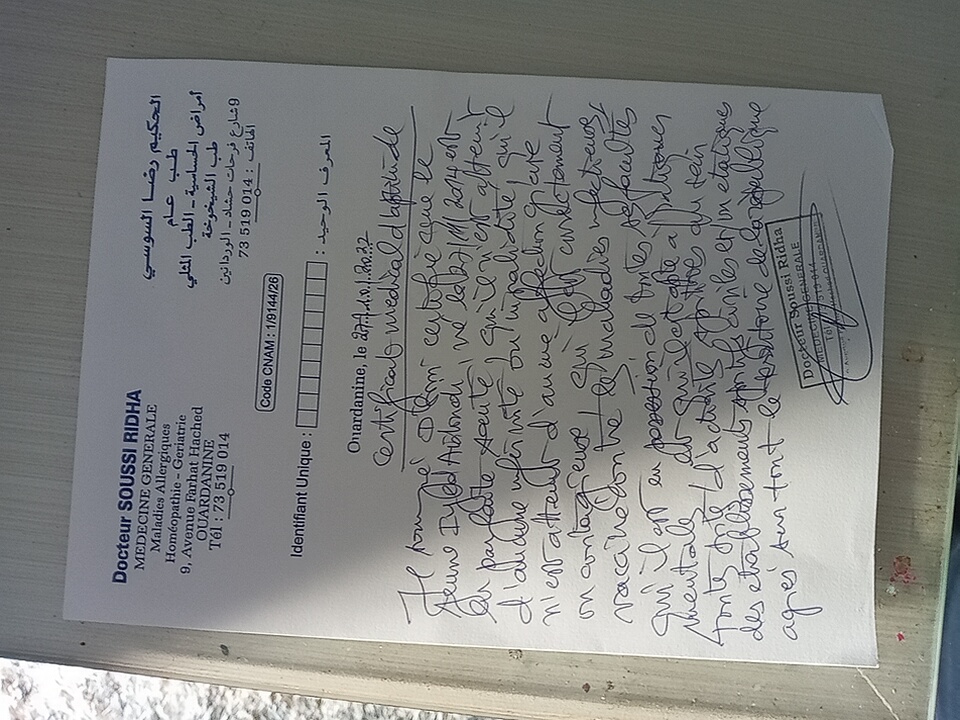 Docteur SOUSSI RIDHA
MEDECINE GENERALE
Maladies Allergiques
Homéopathie - Geriatrie
9, Avenue Farhat Hached
OUARDANINE
Tél : 73 519 014
الحكيم رضا السوسي
طب عام
أمراض الحساسية - الطب المثلي
طب الشيخوخة
9 شارع فرحات حشاد - الوردانين
الهاتف : 73 519 014
Code CNAM : 1/9144/26
Identifiant Unique : المعرف الوحيد :
Ouardanine, le 27.10.2022
Certificat médical d'aptitude
Je certifie que le
jeune Iyed né le 27/11/2014 est
en parfaite santé qu'il n'est atteint
d'aucune infirmité ou invalidité qu'il
n'est atteint d'aucune affection grave
ou contagieuse qu'il est correctement
vacciné contre les maladies infectieuses
qu'il est en possession de toutes ses facultés
mentales et qu'il est apte à pratiquer
toute sorte d'activité sportive au sein
des établissements sportifs privés et ou étatiques
agréés sur tout le territoire de la république
Docteur Soussi Ridha
MEDECINE GENERALE